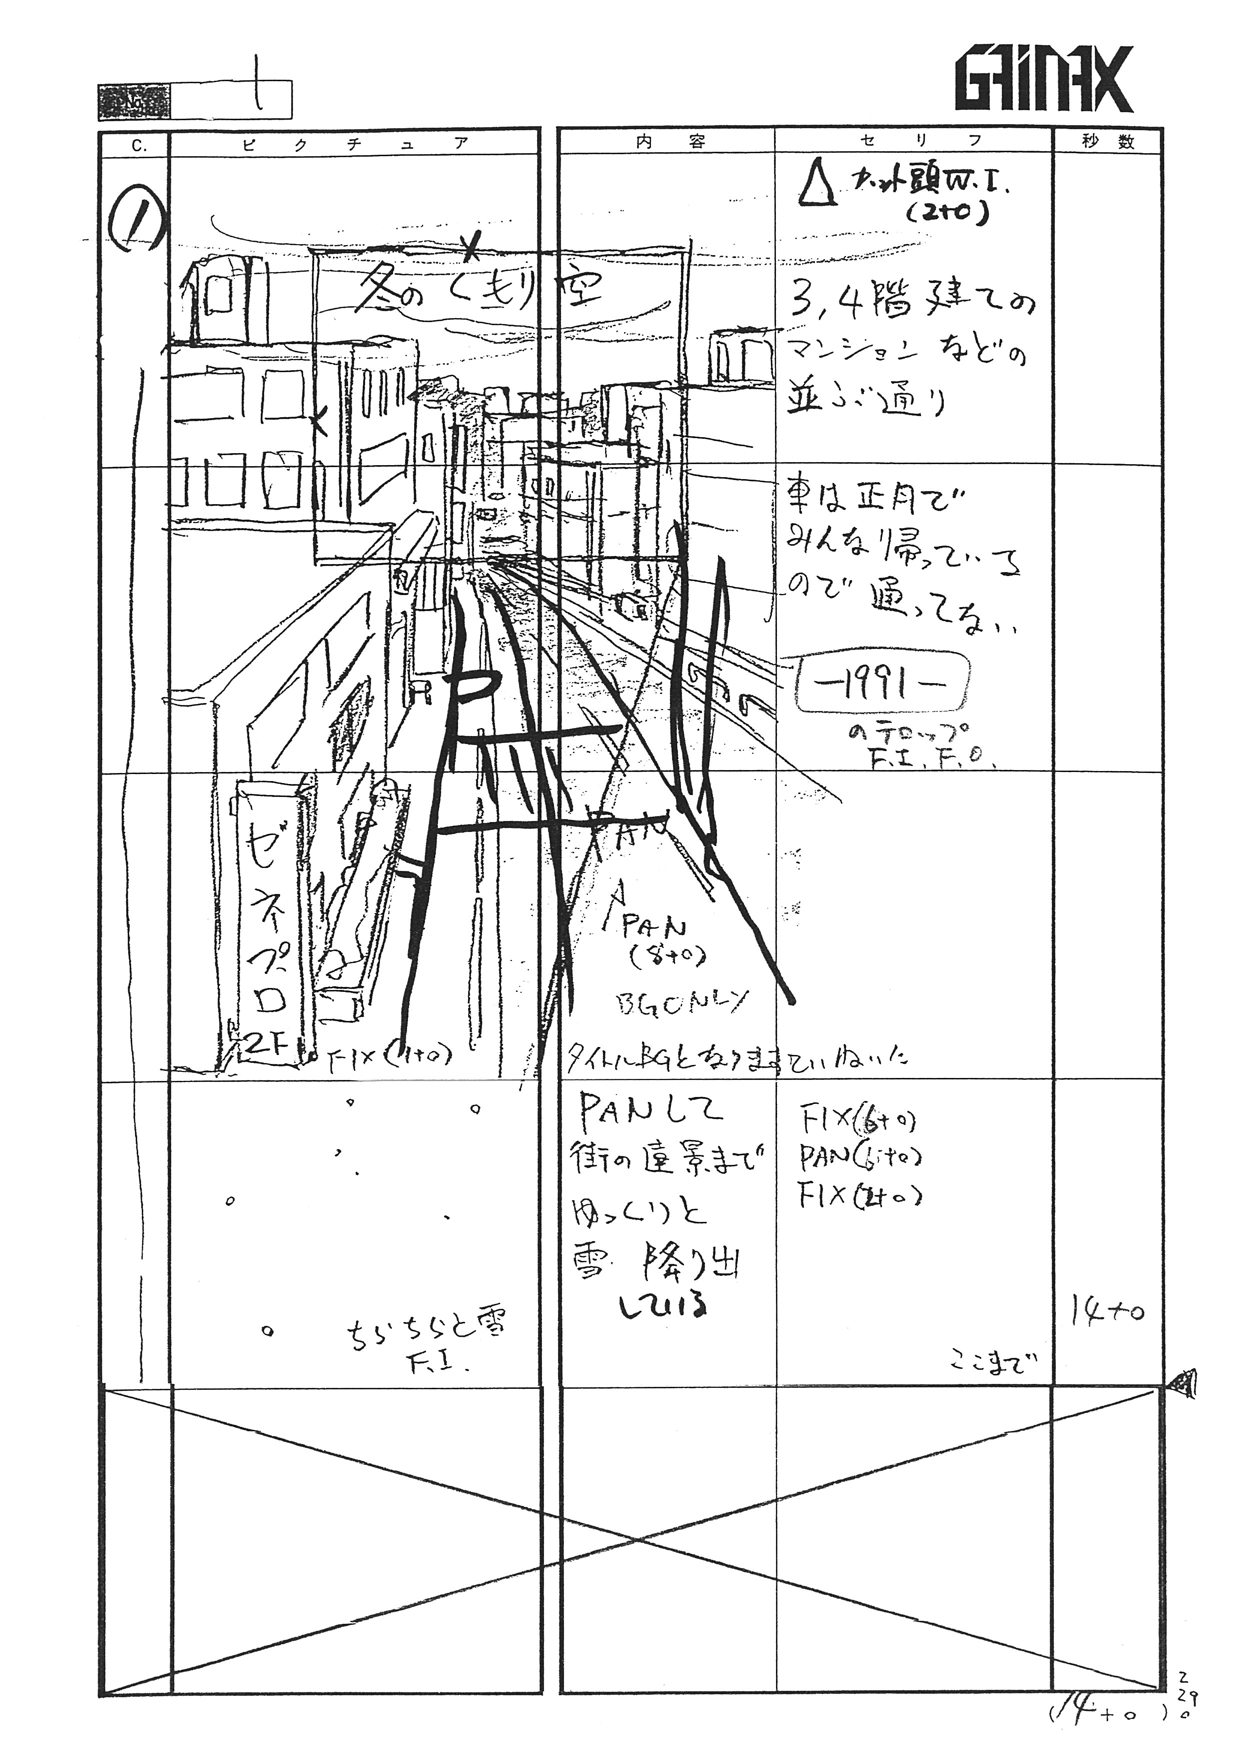 GAINAX
No. 1
C.
ピクチュア
内容
セリフ
秒数
①
△ カット頭W.I.
(2+0)
冬のくもり空
3,4階建ての
マンションなどの
並ぶ通り
車は正月で
みんな帰っている
ので通ってない
—1991—
のテロップ
F.I. F.O.
PAN
PAN
(8+0)
BG ONLY
ゼネプロ
2F
FIX(1+0)
PANして
街の遠景まで
ゆっくりと
雪 降り出
している
FIX(6+0)
PAN(6+0)
FIX(2+0)
ちらちらと雪
F.I.
14+0
ここまで
(14+0)
2
29
0